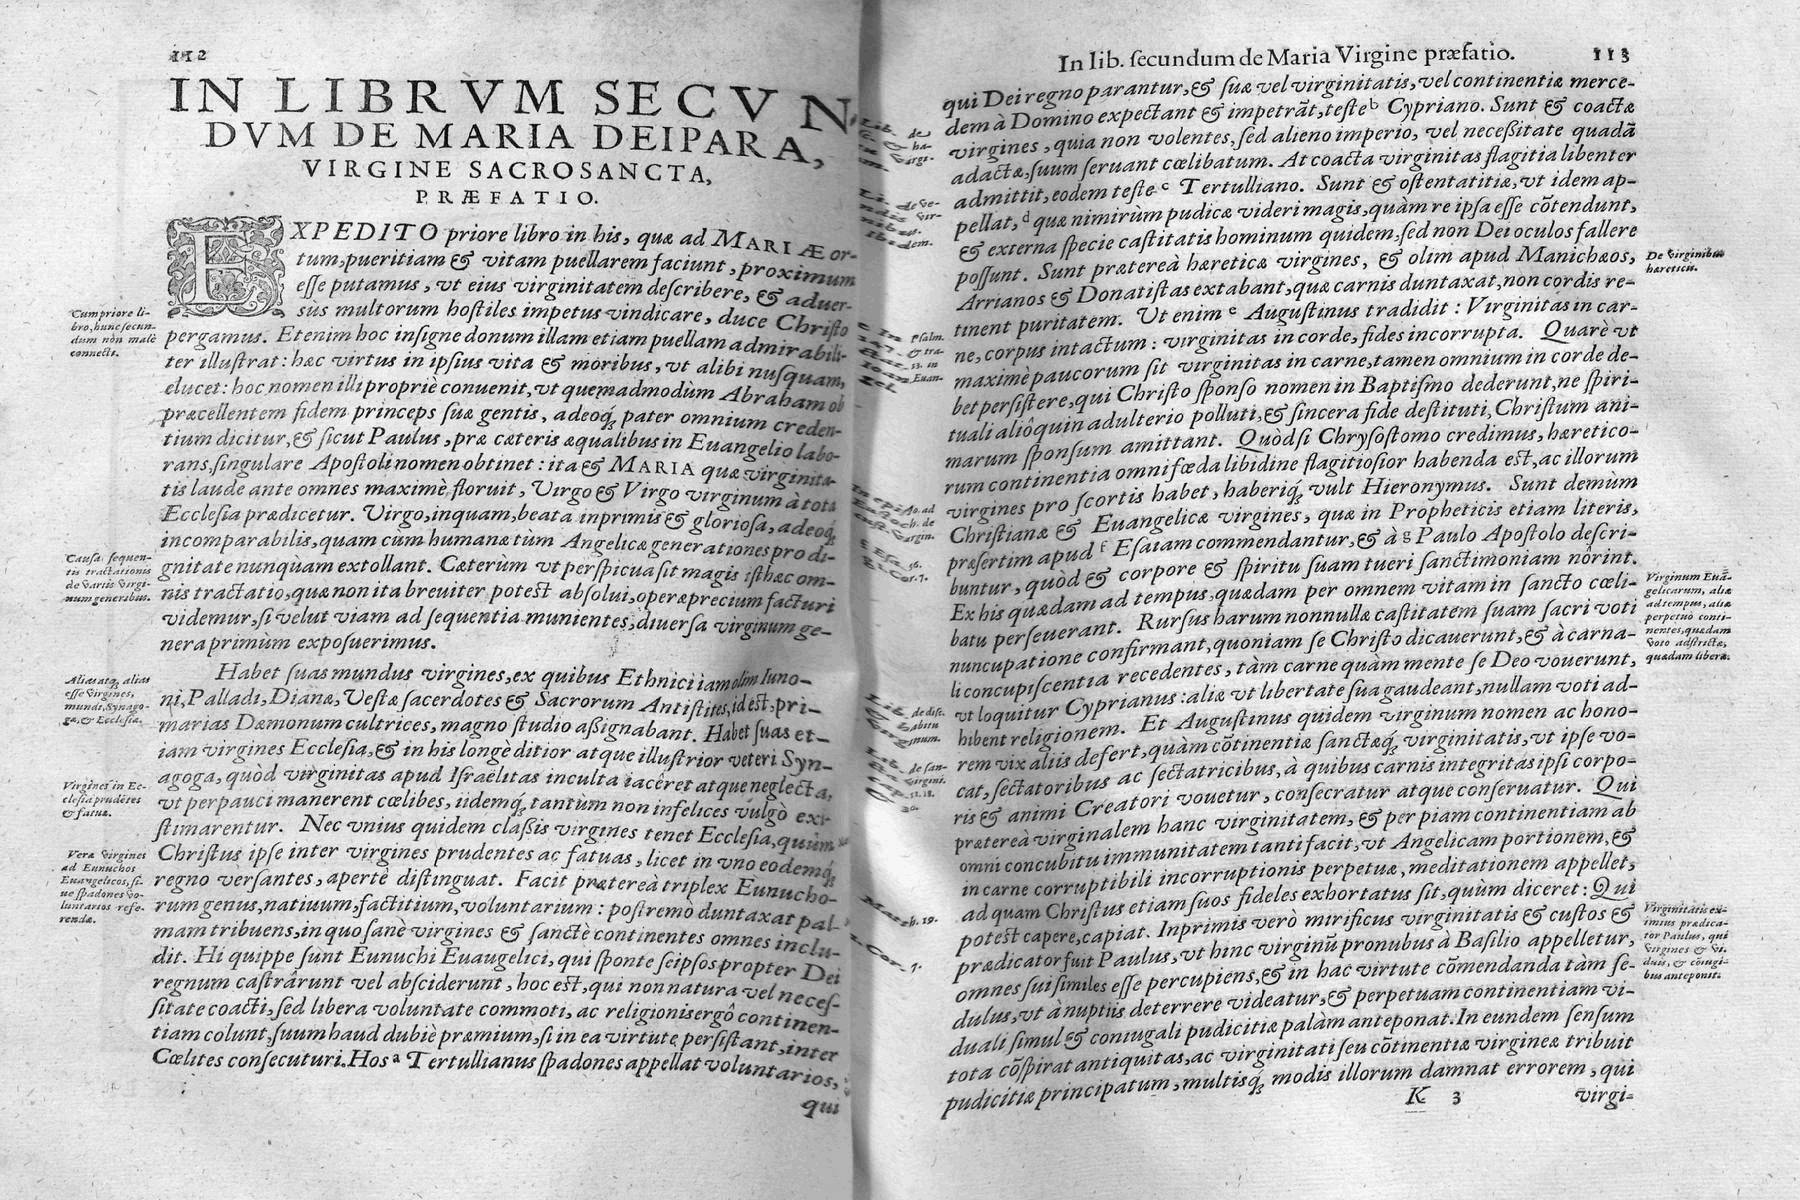 112
IN LIBRVM SECVN
DVM DE MARIA DEIPARA,
VIRGINE SACROSANCTA,
PRÆFATIO.
EXPEDITO priore libro in his, quæ ad MARIÆ or-
tum, pueritiam & vitam puellarem faciunt, proximum
esse putamus, vt eius virginitatem describere, & aduer-
sùs multorum hostiles impetus vindicare, duce Christo
pergamus. Etenim hoc insigne donum illam etiam puellam admirabili-
ter illustrat: hæc virtus in ipsius vita & moribus, vt alibi nusquam,
elucet: hoc nomen illi propriè conuenit, vt quemadmodùm Abraham ob
præcellentem fidem princeps suæ gentis, adeoq́; pater omnium creden-
tium dicitur, & sicut Paulus, præ cæteris æqualibus in Euangelio labo-
rans, singulare Apostoli nomen obtinet: ita & MARIA quæ virginita-
tis laude ante omnes maximè floruit, Virgo & Virgo virginum à tota
Ecclesia prædicetur. Virgo, inquam, beata inprimis & gloriosa, adeoq́;
incomparabilis, quam cùm humanæ tùm Angelicæ generationes pro di-
gnitate nunquàm extollant. Cæterùm vt perspicua sit magis isthæc om-
nis tractatio, quæ non ita breuiter potest absolui, operæprecium facturi
videmur, si velut viam ad sequentia munientes, diuersa virginum ge-
nera primùm exposuerimus.
Habet suas mundus virgines, ex quibus Ethnici iam olim Iuno-
ni, Palladi, Dianæ, Vestæ sacerdotes & Sacrorum Antistites, id est, pri-
marias Dæmonum cultrices, magno studio aßignabant. Habet suas et-
iam virgines Ecclesia, & in his longè ditior atque illustrior veteri Syn-
agoga, quòd virginitas apud Israëlitas inculta iacêret atque neglecta,
vt perpauci manerent cœlibes, iidemq́; tantùm non infelices vulgò exi-
stimarentur. Nec vnius quidem claßis virgines tenet Ecclesia, quùm
Christus ipse inter virgines prudentes ac fatuas, licet in vno eodemq́;
regno versantes, apertè distinguat. Facit prætereà triplex Eunucho-
rum genus, natiuum, factitium, voluntarium: postremò duntaxat pal-
mam tribuens, in quo sanè virgines & sanctè continentes omnes inclu-
dit. Hi quippe sunt Eunuchi Euaugelici, qui sponte seipsos propter Dei
regnum castrârunt vel absciderunt, hoc est, qui non natura vel neces-
sitate coacti, sed libera voluntate commoti, ac religionis ergô continen-
tiam colunt, suum haud dubiè præmium, si in ea virtute persistant, inter
Cœlites consecuturi. Hos a Tertullianus spadones appellat voluntarios,
qui
Cum priore li-
bro, hunc secun-
dum non malè
connecti.
Causa sequen-
tis tractationis
de variis virgi-
num generibus.
Alias atq; alias
esse virgines,
mundi, Synago-
gæ, & Ecclesiæ.
Virgines in Ec-
clesia prudētes
& fatuæ.
Veræ virgines
ad Eunuchos
Euangelicos, si-
ue spadones vo-
luntarios refe-
rendæ.
Matth. 19.
1. Cor. 7.
In lib. secundum de Maria Virgine præfatio. 113
qui Dei regno parantur, & suæ vel virginitatis, vel continentiæ merce-
dem à Domino expectant & impetrāt, teste b Cypriano. Sunt & coactæ
virgines, quia non volentes, sed alieno imperio, vel neceßitate quadā
adactæ, suum seruant cœlibatum. At coacta virginitas flagitia libenter
admittit, eodem teste c Tertulliano. Sunt & ostentatitiæ, vt idem ap-
pellat, d quæ nimirùm pudicæ videri magis, quàm re ipsa esse cōtendunt,
& externa specie castitatis hominum quidem, sed non Dei oculos fallere
possunt. Sunt prætereà hæreticæ virgines, & olim apud Manichæos,
Arrianos & Donatistas extabant, quæ carnis duntaxat, non cordis re-
tinent puritatem. Ut enim e Augustinus tradidit: Virginitas in car-
ne, corpus intactum: virginitas in corde, fides incorrupta. Quarè vt
maximè paucorum sit virginitas in carne, tamen omnium in corde de-
bet persistere, qui Christo sponso nomen in Baptismo dederunt, ne spiri-
tuali aliôquin adulterio polluti, & sincera fide destituti, Christum ani-
marum sponsum amittant. Quòdsi Chrysostomo credimus, hæretico-
rum continentia omni fœda libidine flagitiosior habenda est, ac illorum
virgines pro scortis habet, haberiq́; vult Hieronymus. Sunt demùm
Christianæ & Euangelicæ virgines, quæ in Propheticis etiam literis,
præsertim apud f Esaiam commendantur, & à g Paulo Apostolo descri-
buntur, quòd & corpore & spiritu suam tueri sanctimoniam nôrint.
Ex his quædam ad tempus, quædam per omnem vitam in sancto cœli-
batu perseuerant. Rursus harum nonnullæ castitatem suam sacri voti
nuncupatione confirmant, quoniam se Christo dicauerunt, & à carna-
li concupiscentia recedentes, tàm carne quàm mente se Deo vouerunt,
vt loquitur Cyprianus: aliæ vt libertate sua gaudeant, nullam voti ad-
hibent religionem. Et Augustinus quidem virginum nomen ac hono-
rem vix aliis defert, quàm cōtinentiæ sanctæq́; virginitatis, vt ipse vo-
cat, sectatoribus ac sectatricibus, à quibus carnis integritas ipsi corpo-
ris & animi Creatori vouetur, consecratur atque conseruatur. Qui
prætereà virginalem hanc virginitatem, & per piam continentiam ab
omni concubitu immunitatem tanti facit, vt Angelicam portionem, &
in carne corruptibili incorruptionis perpetuæ, meditationem appellet,
ad quam Christus etiam suos fideles exhortatus sit, quùm diceret: Qui
potest capere, capiat. Inprimis verò mirificus virginitatis & custos &
prædicator fuit Paulus, vt hinc virginū pronubus à Basilio appelletur,
omnes sui similes esse percupiens, & in hac virtute cōmendanda tàm se-
dulus, vt à nuptiis deterrere videatur, & perpetuam continentiam vi-
duali simul & coniugali pudicitiæ palàm anteponat. In eundem sensum
tota cōspirat antiquitas, ac virginitati seu cōtinentiæ virgineæ tribuit
pudicitiæ principatum, multisq́; modis illorum damnat errorem, qui
K 3 virgi-
De virginibus
hæreticis.
Virginum Euā-
gelicarum, aliæ
ad tempus, aliæ
perpetuò conti-
nentes, quædam
voto adstrictæ,
quædam liberæ.
Virginitatis ex-
imius prædica-
tor Paulus, qui
virgines & vi-
duis, & cōiugi-
bus anteponit.